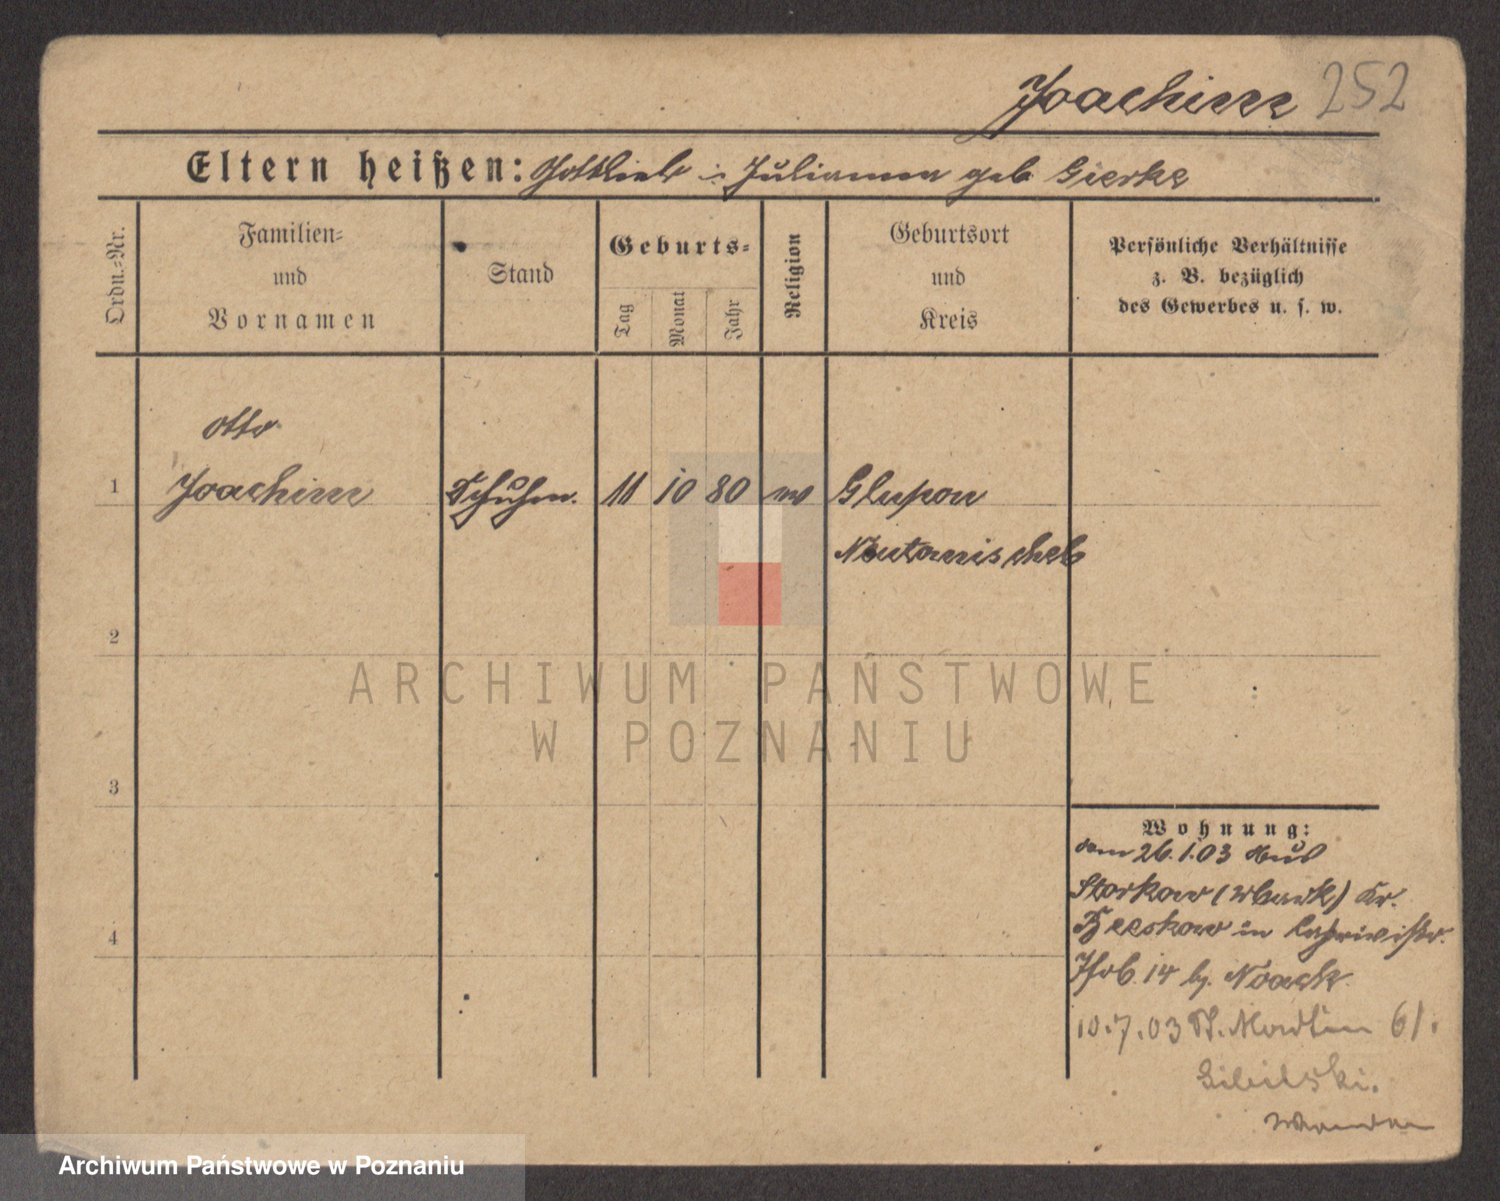 Joachim 252
Eltern heißen: Gottlieb u Julianna geb Gierke
Ordn.=Nr.
Familien=
und
Vornamen
Stand
Geburts=
Tag
Monat
Jahr
Religion
Geburtsort
und
Kreis
Persönliche Verhältnisse
z. B. bezüglich
des Gewerbes u. s. w.
Otto
1 Joachim Schuhm. 11 10 80 Glupon
Neutomischel
2
ARCHIWUM PAŃSTWOWE
W POZNANIU
3
Wohnung:
26.1.03 aus
Storkow (Mark) Kr.
4 Beeskow in
14 b. Noack
10.7.03 St. Martin 61.
Wandern
Archiwum Państwowe w Poznaniu